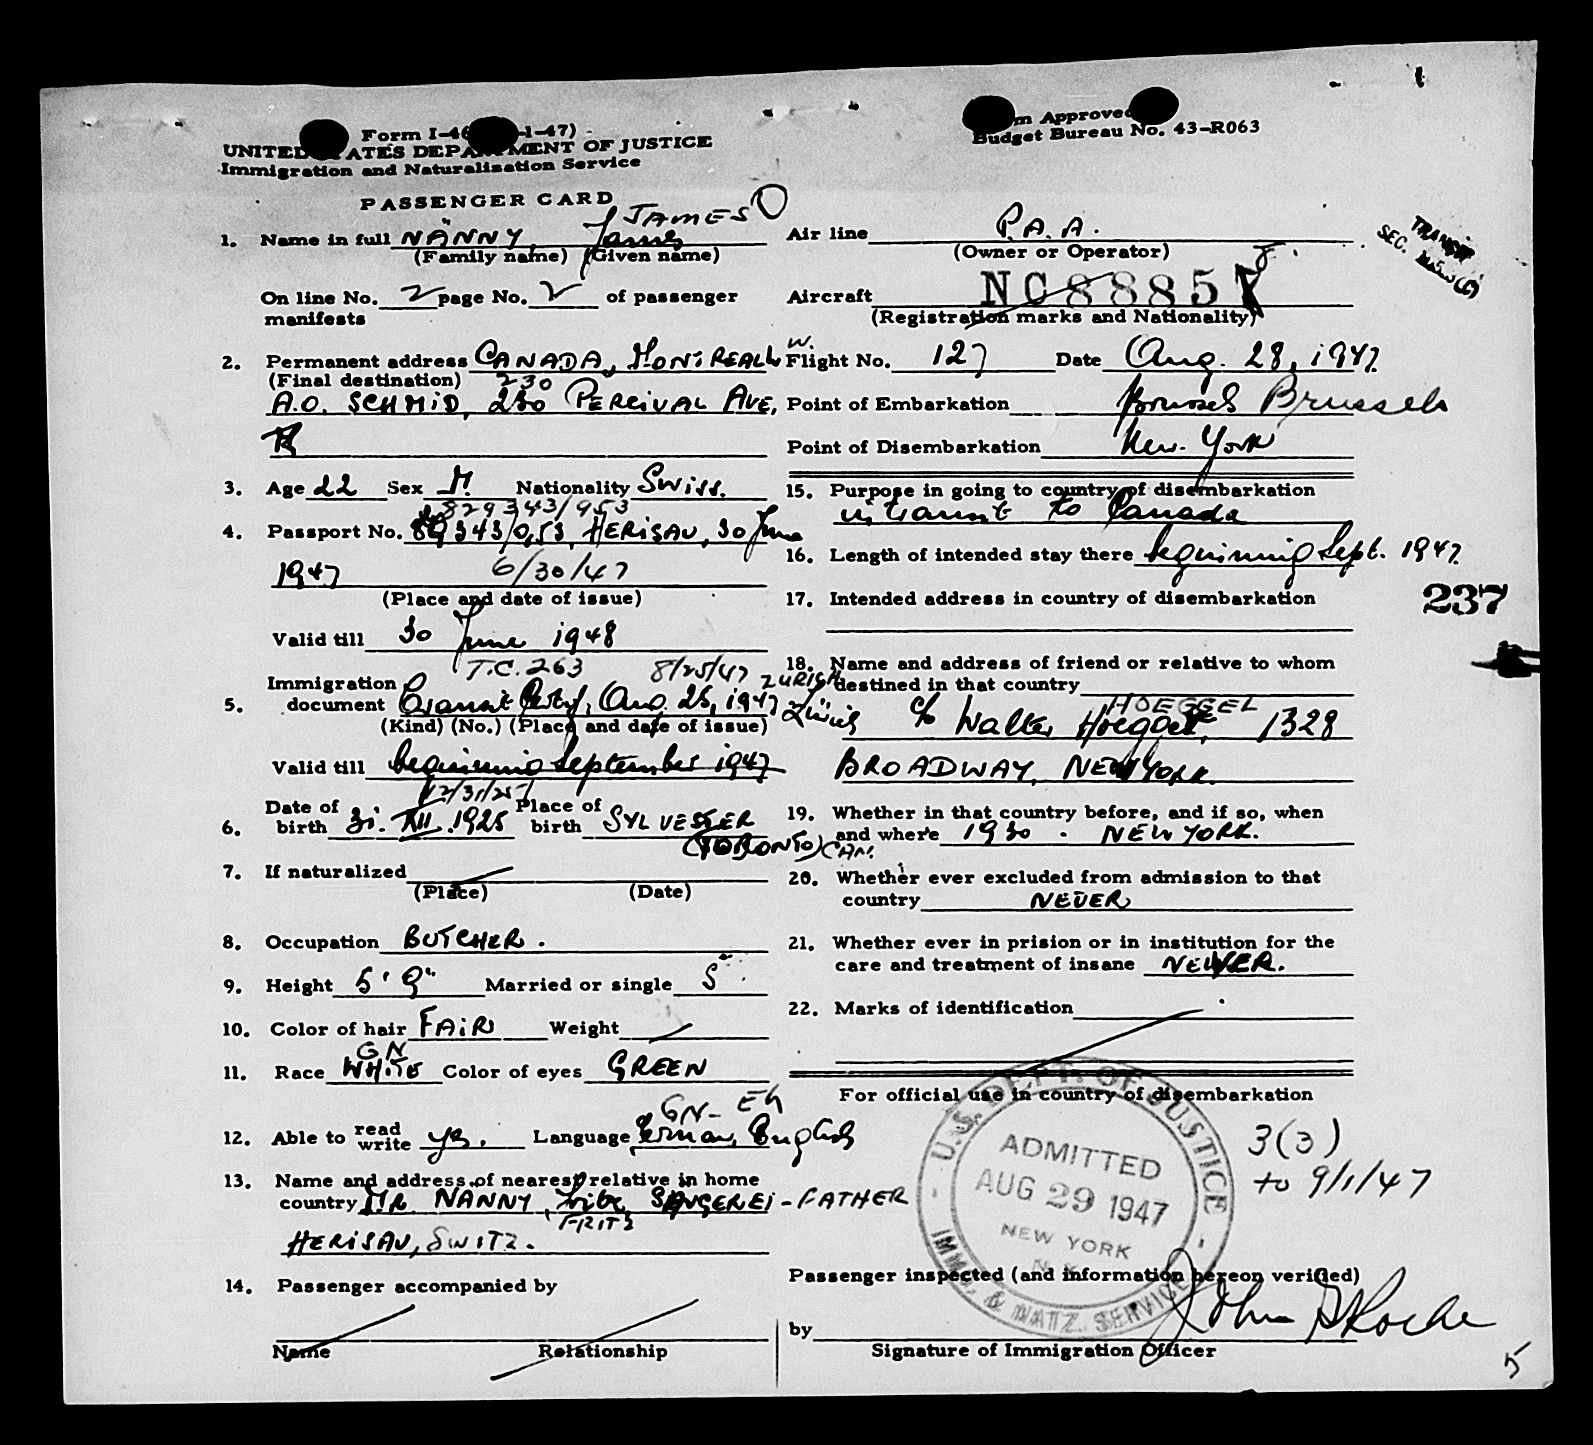 Form I-46 -1-47)
UNITED STATES DEPARTMENT OF JUSTICE
Immigration and Naturalization Service
Form Approved
Budget Bureau No. 43-R063
PASSENGER CARD
JAMES
1. Name in full NÄNNY, James
(Family name) (Given name)
On line No. 2 page No. 2 of passenger
manifests
2. Permanent address CANADA, MONTREAL W.
(Final destination) 230
A.O. SCHMID, 230 PERCIVAL AVE,
3. Age 22 Sex M. Nationality Swiss.
829343/953
4. Passport No. 829343/953, HERISAU, 30 June
1947 6/30/47
(Place and date of issue)
Valid till 30 June 1948
T.C. 263 8/25/47 ZURICH
Immigration
5. document Transit Aug. 25, 1947 Zürich
(Kind) (No.) (Place and date of issue)
Valid till beginning September 1947
12/31/25
Date of Place of
6. birth 31. XII. 1925 birth SYLVESTER
(TORONTO) CAN.
7. If naturalized
(Place) (Date)
8. Occupation BUTCHER.
9. Height 5' 9" Married or single S
10. Color of hair FAIR Weight
GN
11. Race WHITE Color of eyes GREEN
GN- EH
12. Able to read write yes. Language German, English
13. Name and address of nearest relative in home
country MR. NANNY, SÄNGEREI - FATHER
FRITZ
HERISAU, SWITZ.
14. Passenger accompanied by
Name Relationship
Air line P.A.A.
(Owner or Operator)
8.
Aircraft NC88857
(Registration marks and Nationality)
TRANSIT
SEC.
Flight No. 127 Date Aug. 28, 1947
Point of Embarkation Brussels Brussels
Point of Disembarkation New-York
15. Purpose in going to country of disembarkation
in transit to Canada
16. Length of intended stay there beginning Sept. 1947
17. Intended address in country of disembarkation
237
18. Name and address of friend or relative to whom
destined in that country
HOEGGEL
c/o Walter Hoeggel, 1328
BROADWAY, NEW YORK.
19. Whether in that country before, and if so, when
and where 1930. NEW YORK.
20. Whether ever excluded from admission to that
country NEVER
21. Whether ever in prision or in institution for the
care and treatment of insane NEVER.
22. Marks of identification
For official use in country of disembarkation
U.S. DEPT. OF JUSTICE
ADMITTED
AUG 29 1947
NEW YORK
N.Y.
IMM. & NATZ. SERVICE
3(3)
to 9/1/47
Passenger inspected (and information hereon verified)
by John Roche
Signature of Immigration Officer
5